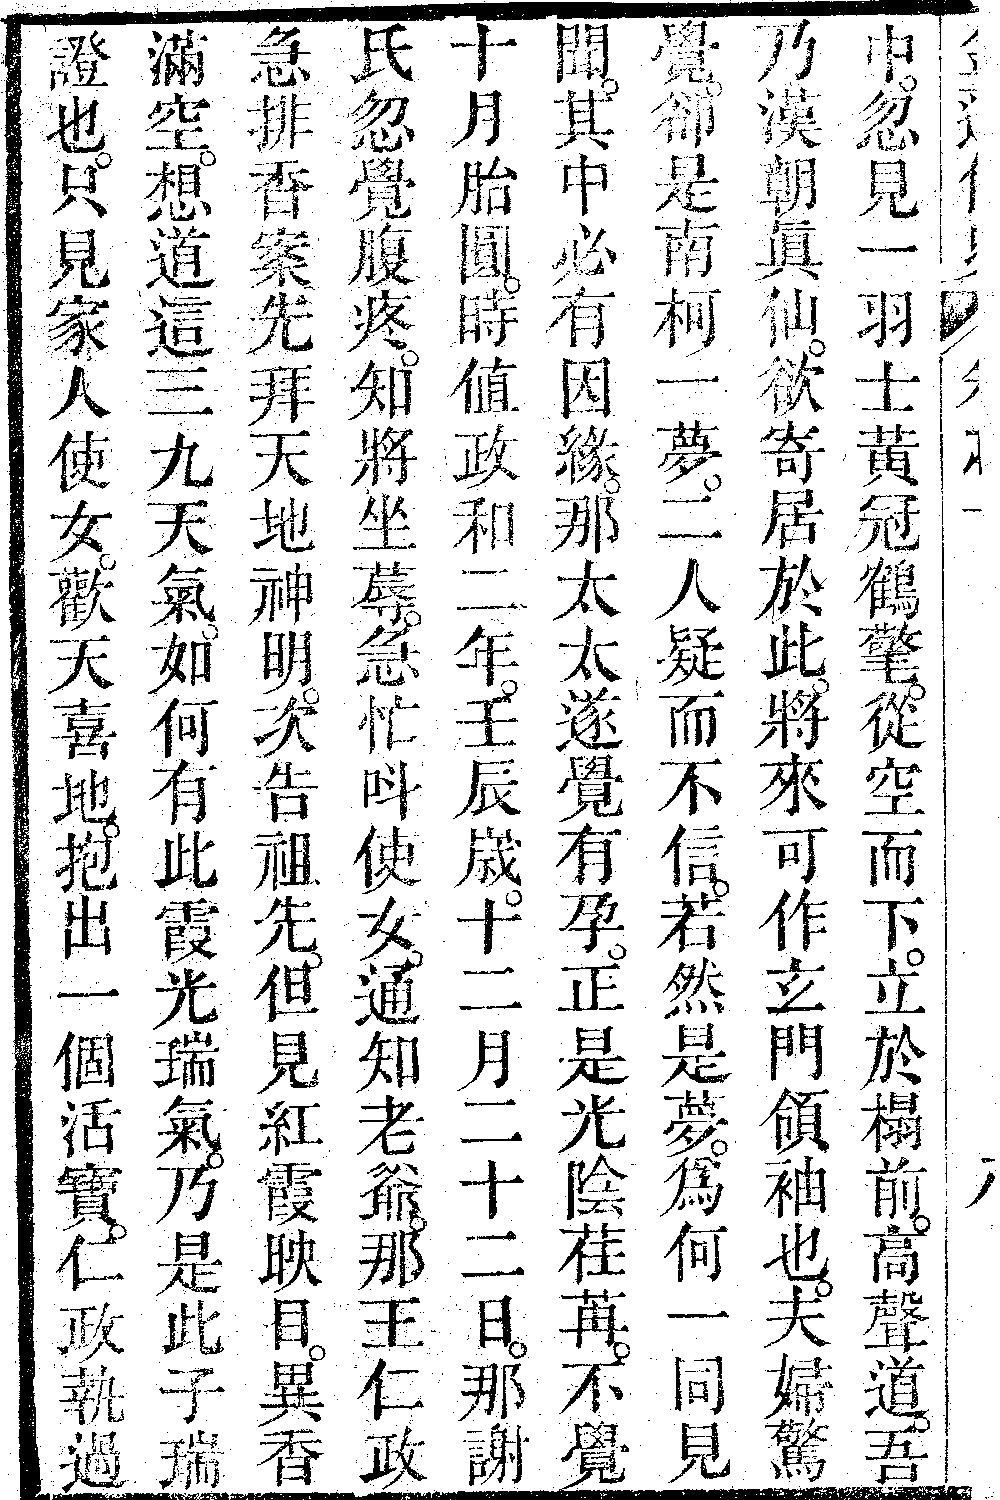 中。忽見一羽士黃冠鶴氅。從空而下。立於榻前。高聲道。吾
乃漢朝眞仙。欲寄居於此。將來可作玄門領袖也。夫婦驚
覺。卻是南柯一夢。二人疑而不信。若然是夢。爲何一同見
聞。其中必有因緣。那太太遂覺有孕。正是光陰荏苒。不覺
十月胎圓。時值政和二年。壬辰歲。十二月二十二日。那謝
氏忽覺腹疼。知將坐蓐。急忙呌使女。通知老爺。那王仁政
急排香案先拜天地神明。次告祖先。但見紅霞映目。異香
滿空。想道這三九天氣。如何有此霞光瑞氣。乃是此子瑞
證也。只見家人使女。歡天喜地。抱出一個活寶。仁政執過